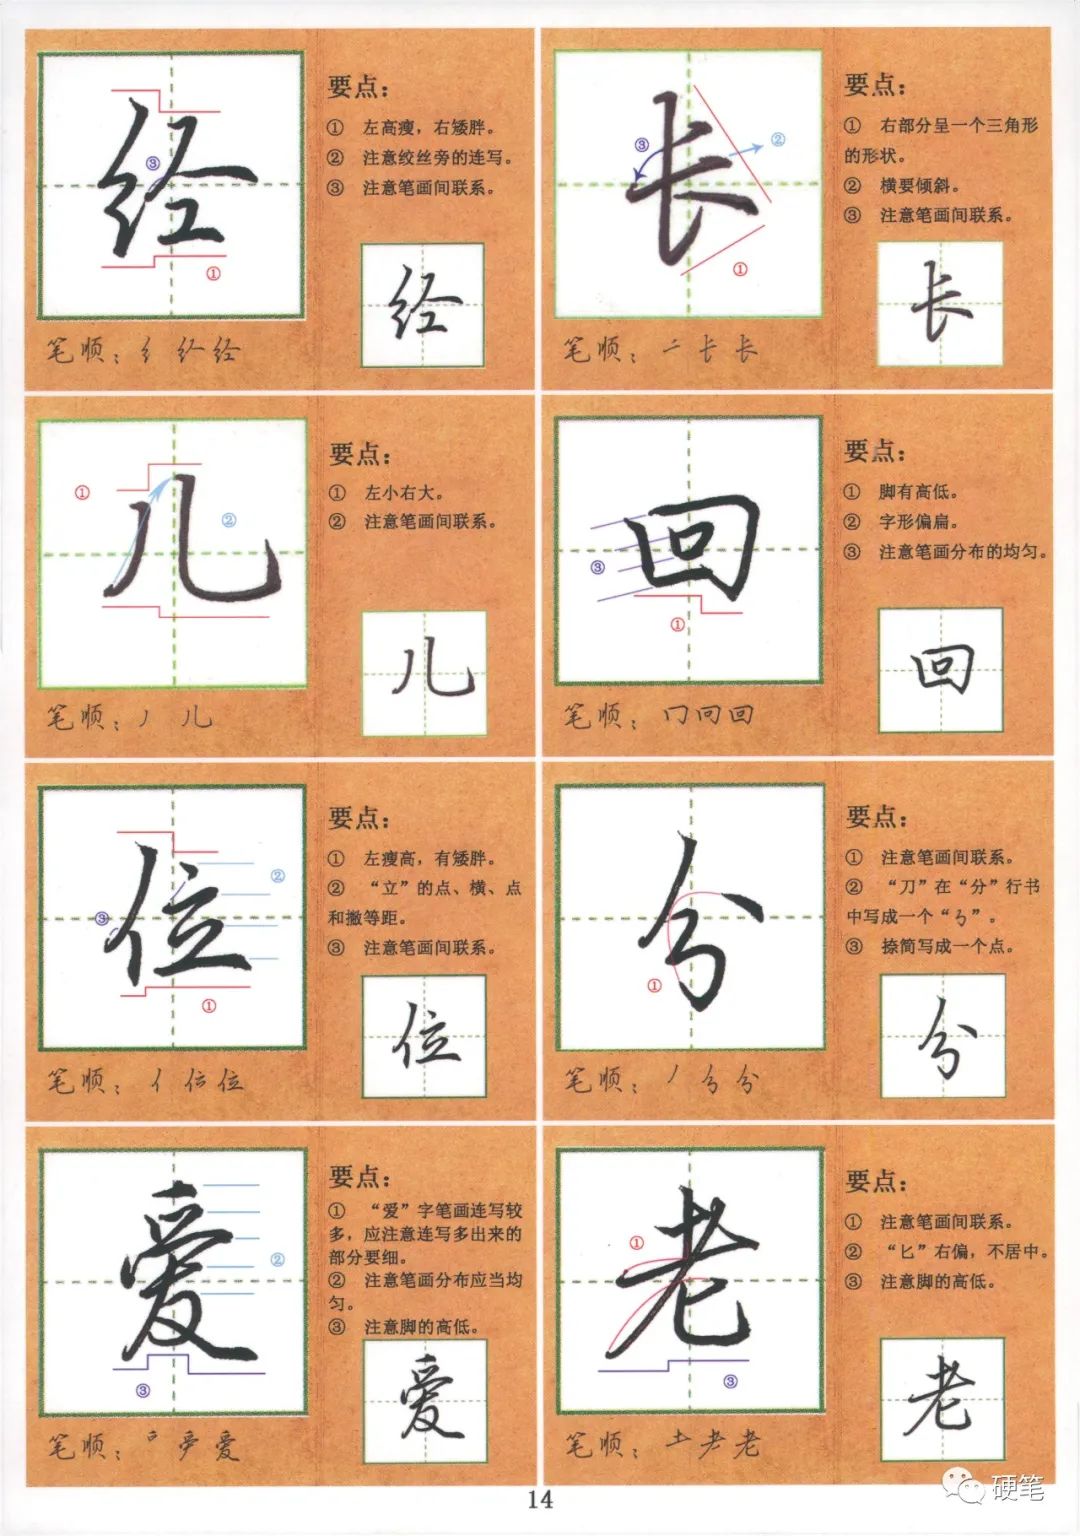 经
要点：
① 左高瘦，右矮胖。
② 注意绞丝旁的连写。
③ 注意笔画间联系。
③
①
经
笔顺：纟 经 经
长
要点：
① 右部分呈一个三角形
的形状。
② 横要倾斜。
③ 注意笔画间联系。
③
②
①
长
笔顺：二 长 长
儿
要点：
① 左小右大。
② 注意笔画间联系。
①
②
儿
笔顺：丿 儿
回
要点：
① 脚有高低。
② 字形偏扁。
③ 注意笔画分布的均匀。
③
①
回
笔顺：冂 回 回
位
要点：
① 左瘦高，有矮胖。
② “立”的点、横、点
和撇等距。
③ 注意笔画间联系。
②
③
①
位
笔顺：亻 位 位
分
要点：
① 注意笔画间联系。
② “刀”在“分”行书
中写成一个“”。
③ 捺简写成一个点。
①
分
笔顺：丿 分 分
爱
要点：
① “爱”字笔画连写较
多，应注意连写多出来的
部分要细。
② 注意笔画分布应当均
匀。
③ 注意脚的高低。
②
③
爱
笔顺：爱
老
要点：
① 注意笔画间联系。
② “匕”右偏，不居中。
③ 注意脚的高低。
①
③
老
笔顺：土 老 老
14
硬笔